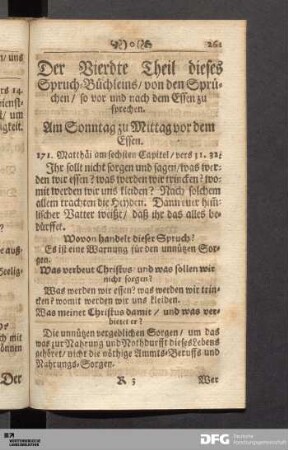 o 261
Der Vierdte Theil dieses
Spruch-Büchleins/ von den Sprü-
chen/ so vor und nach dem Essen zu
sprechen.
Am Sonntag zu Mittag vor dem
Essen.
171. Matthäi am sechsten Capitel/ vers 31. 32:
Ihr sollt nicht sorgen und sagen/ was wer-
den wir essen? was werden wir trincken? wo-
mit werden wir uns kleiden? Nach solchem
allem trachten die Heyden. Dann euer him̃-
lischer Vatter weißt/ daß ihr das alles be-
dürffet.
Wovon handelt dieser Spruch?
Es ist eine Warnung für den unnützen Sor-
gen.
Was verbeut Christus und was sollen wir
nicht sorgen?
Was werden wir essen? was werden wir trin-
cken? womit werden wir uns kleiden.
Was meinet Christus damit/ und was ver-
bietet er?
Die unnützen vergeblichen Sorgen/ um das
was zur Nahrung und Nothdurfft dieses Lebens
gehöret/ nicht die nöthige Ammts-Beruffs und
Nahrungs-Sorgen.
R 3 Wer
Der
DFG
Deutsche
Forschungsgemeinschaft